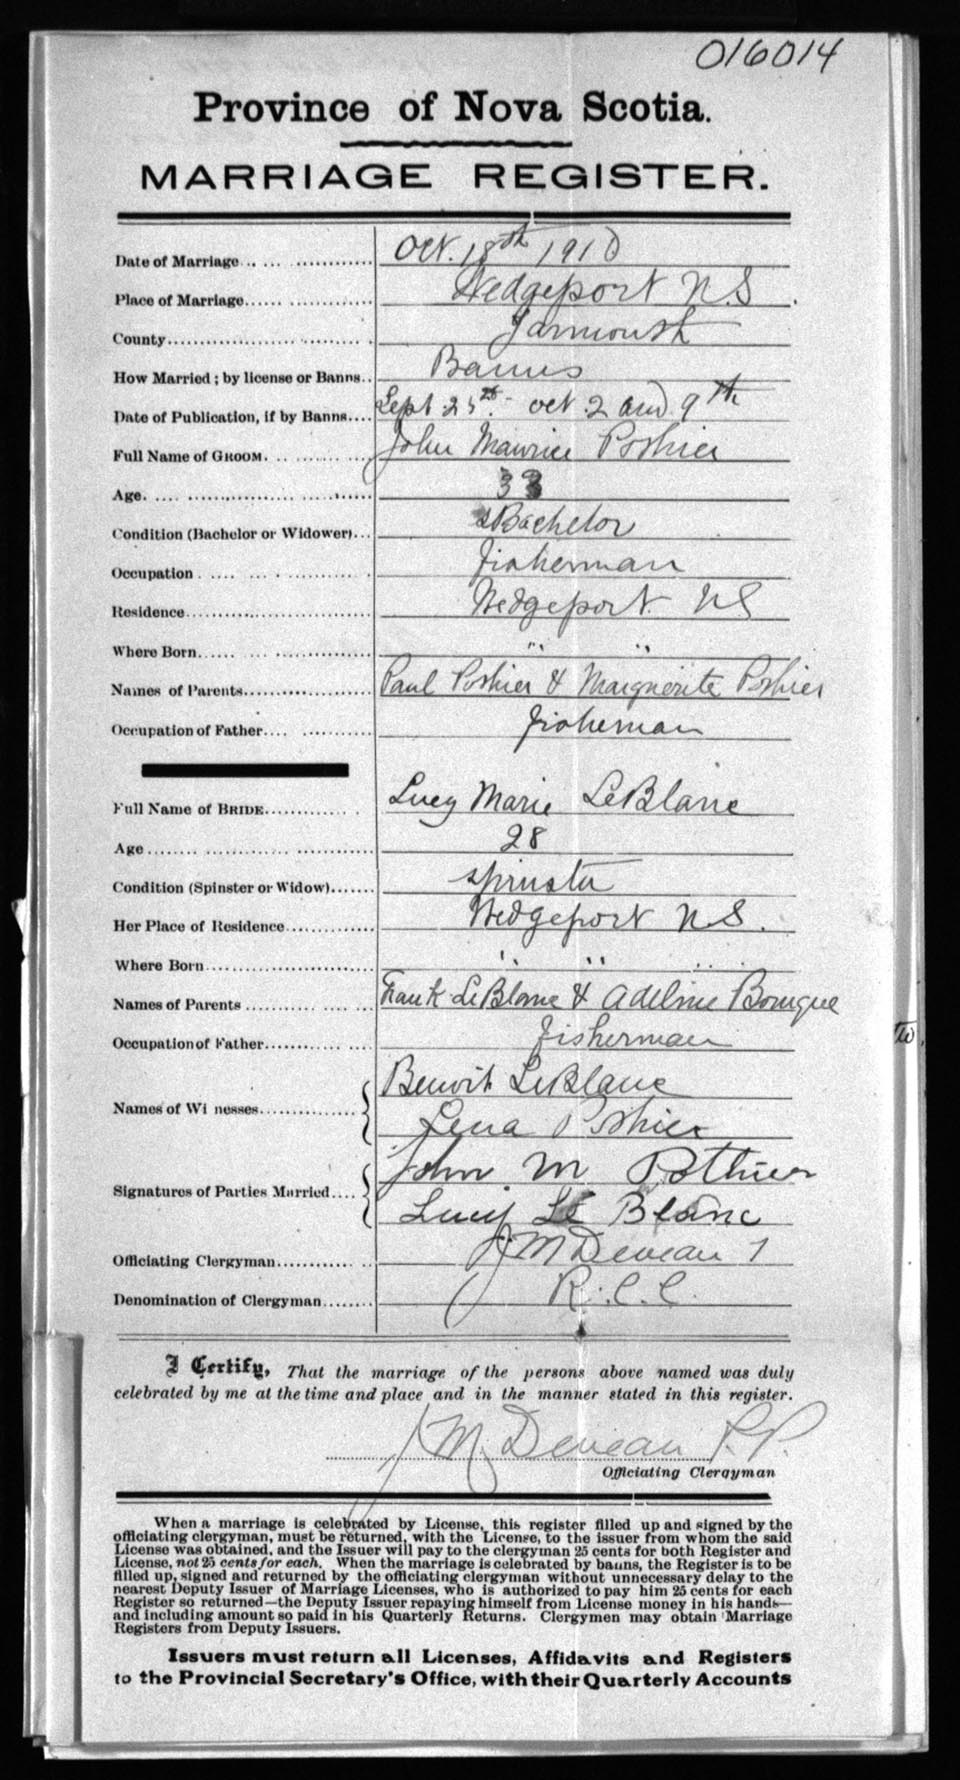 016014
Province of Nova Scotia.
MARRIAGE REGISTER.
Date of Marriage Oct. 18th 1910
Place of Marriage Wedgeport N.S.
County Yarmouth
How Married; by license or Banns Banns
Date of Publication, if by Banns Sept 25th. Oct. 2 and 9th
Full Name of GROOM John Maurice Pothier
Age 33
Condition (Bachelor or Widower) Bachelor
Occupation fisherman
Residence Wedgeport NS
Where Born " "
Names of Parents Paul Pothier & Marguerite Pothier
Occupation of Father fisherman
Full Name of BRIDE Lucy Marie LeBlanc
Age 28
Condition (Spinster or Widow) spinster
Her Place of Residence Wedgeport N.S.
Where Born " "
Names of Parents Frank LeBlanc & Adeline Bourque
Occupation of Father fisherman
Names of Wi nesses Benoit LeBlanc
Lena Pothier
Signatures of Parties Married John M Pothier
Lucy Le Blanc
Officiating Clergyman J M Deveau
Denomination of Clergyman R.C.C.
I Certify, That the marriage of the persons above named was duly
celebrated by me at the time and place and in the manner stated in this register.
J M Deveau P.P.
Officiating Clergyman
When a marriage is celebrated by License, this register filled up and signed by the
officiating clergyman, must be returned, with the License, to the issuer from whom the said
License was obtained, and the Issuer will pay to the clergyman 25 cents for both Register and
License, not 25 cents for each. When the marriage is celebrated by banns, the Register is to be
filled up, signed and returned by the officiating clergyman without unnecessary delay to the
nearest Deputy Issuer of Marriage Licenses, who is authorized to pay him 25 cents for each
Register so returned—the Deputy Issuer repaying himself from License money in his hands—
and including amount so paid in his Quarterly Returns. Clergymen may obtain Marriage
Registers from Deputy Issuers.
Issuers must return all Licenses, Affidavits and Registers
to the Provincial Secretary's Office, with their Quarterly Accounts